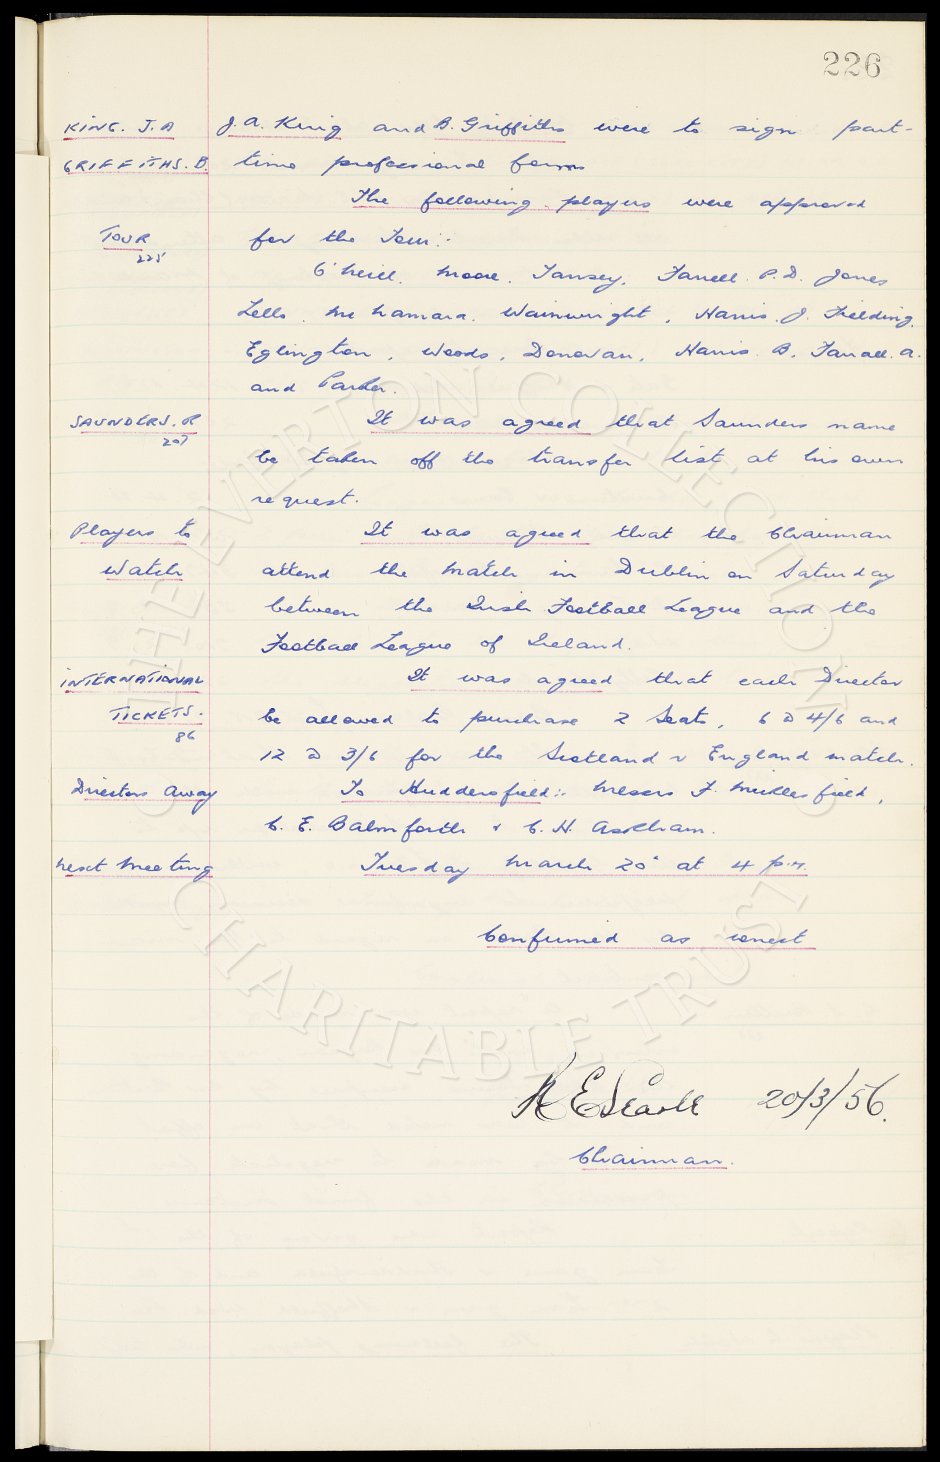 226
KING. J.A J.A. King and B. Griffiths were to sign part-
GRIFFITHS. B. time professional forms
The following players were approved
TOUR for the Tour:-
225
O'Neill. Moore. Tansey. Farrell. P.D. Jones
Lello. McNamara. Wainwright, Harris. J. Fielding.
Eglington, Woods, Donovan, Harris. B. Farrall. A.
and Parker.
SAUNDERS. R It was agreed that Saunders name
207
be taken off the transfer list at his own
request.
Players to It was agreed that the Chairman
Watch attend the match in Dublin on Saturday
between the Irish Football League and the
Football League of Ireland.
INTERNATIONAL It was agreed that each Director
TICKETS. be allowed to purchase 2 Seats, 6 @ 4/6 and
86
12 @ 3/6 for the Scotland v England match.
Directors Away To Huddersfield:- Messrs F. Micklesfield,
C. E. Balmforth & C. H. Askham.
Next Meeting Tuesday March 20" at 4 p.m.
Confirmed as correct
R E Searle 20/3/56.
Chairman.
© THE EVERTON COLLECTION CHARITABLE TRUST